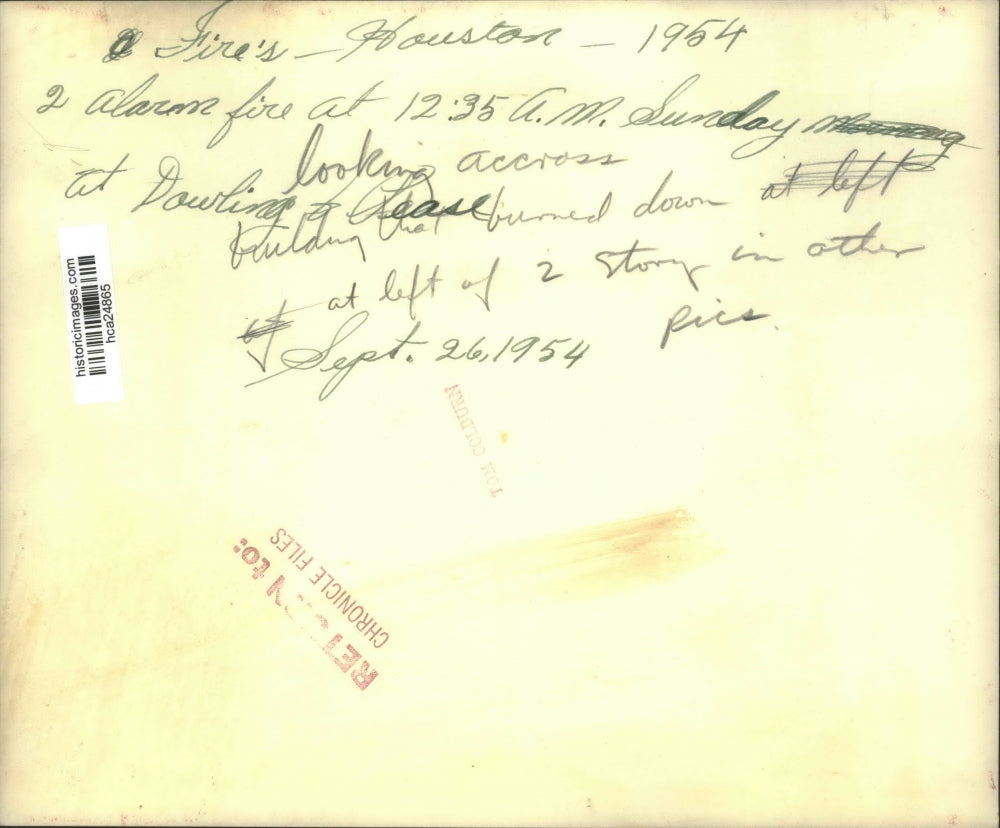 Fire's — Houston — 1954
2 alarm fire at 12:35 A.M. Sunday
looking accross
at Dowling & Pease
building that burned down at left
at left of 2 story in other
pics.
Sept. 26, 1954
historicimages.com
hca24865
TOM COLBURN
RETURN to:
CHRONICLE FILES